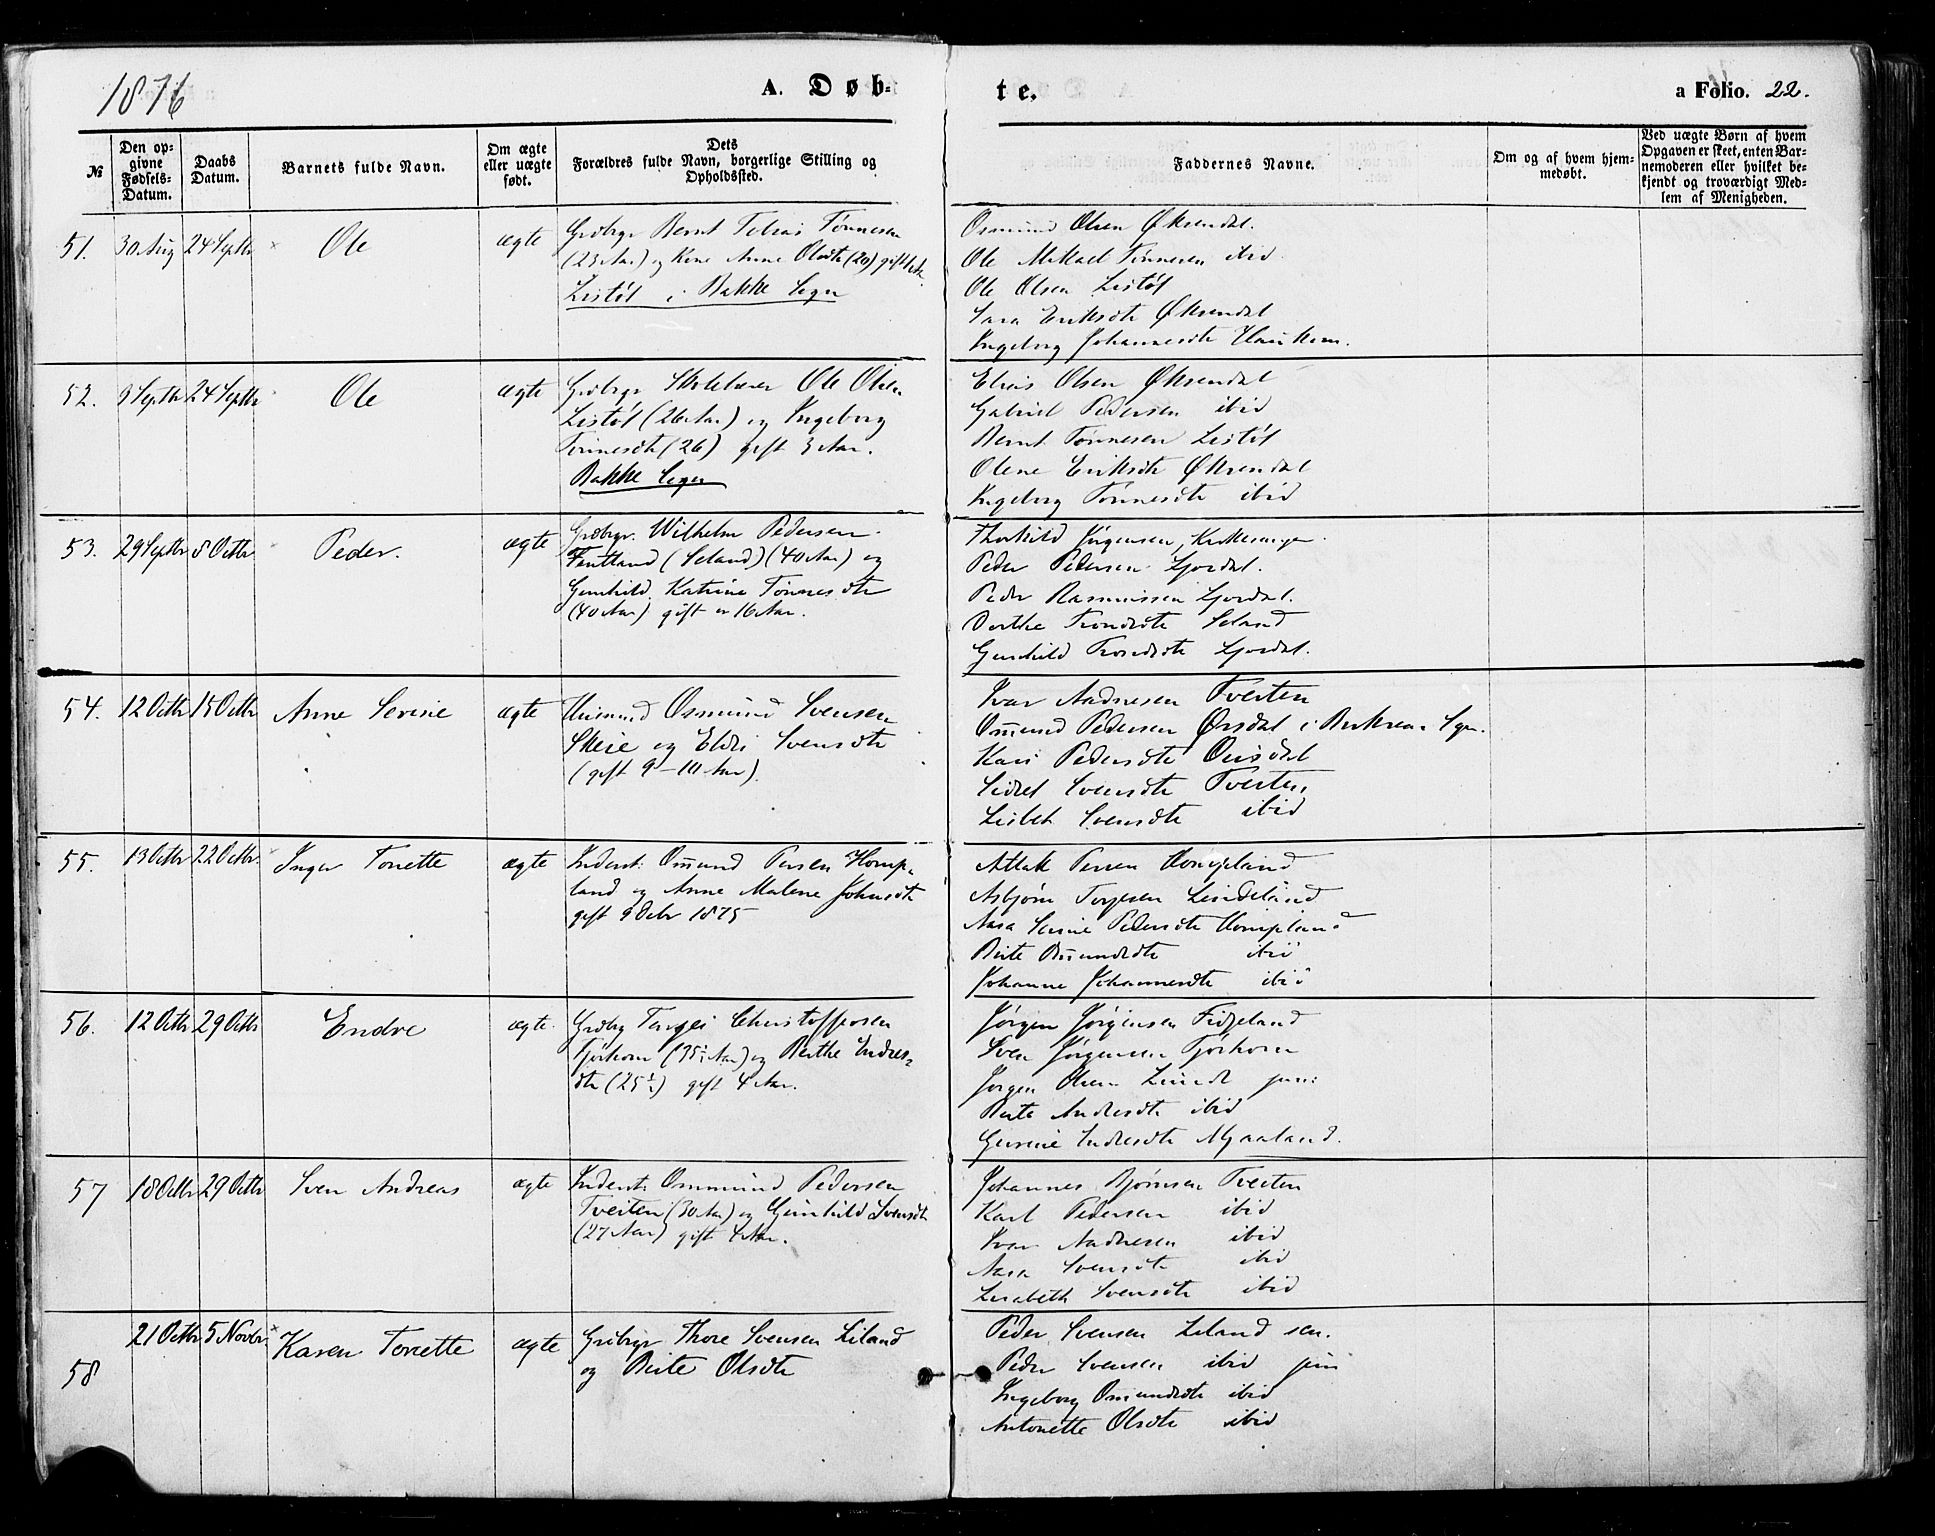 1876
A. Døb-
te.
a Folio. 22.
№
Den op-
givne
Fødsels-
Datum.
Daabs
Datum.
Barnets fulde Navn.
Om ægte
eller uægte
født.
Dets
Forældres fulde Navn, borgerlige Stilling og
Opholdssted.
Faddernes Navne.
Om og af hvem hjem-
medøbt.
Ved uægte Børn af hvem
Opgaven er skeet, enten Bar-
nemoderen eller hvilket be-
kjendt og troværdigt Med-
lem af Menigheden.
51. 30 Aug 24 Septbr Ole ægte
Grdbrgr Bernt Tobias Tønnesen
(23 Aar) og Kone Anne Olsdtr (20) gift
Listøl i Bakke Sogn
Osmund Olsen Øksendal.
Ole Mikael Tønnesen ibid
Ole Olsen Listøl
Sara Eriksdtr Øksendal
Ingeborg Johannesdtr
52. 9 Septbr 24 Septbr Ole ægte
Grdbrgr Skolelærer Ole Olsen
Listøl (26 Aar) og Ingeborg
Tønnesdtr (26) gift 3 Aar.
Bakke Sogn
Elias Olsen Øksendal
Gabriel Pedersen ibid
Bernt Tønnesen Listøl
Olene Eriksdtr Øksendal
Ingeborg Tønnesdtr ibid
53. 29 Septbr 8 Octbr Peder. ægte
Grdbrgr. Wilhelm Pedersen
Fentland (Seland) (40 Aar) og
Gunhild Katrine Tønnesdtr
(40 Aar) gift er 16 Aar.
Thorkild Jørgensen,
Peder Pedersen Fjordal.
Peder Rasmussen Fjordal.
Dorthe Trondsdtr Seland
Gunhild Trondsdtr Fjordal.
54. 12 Octbr 15 Octbr Anne Serine ægte
Huusmd Osmund Svensen
Skeie og Eldri Svensdtr
(gift 9-10 Aar)
Ivar Aadnesen Tveiten
Osmund Pedersen Ørsdal i Birkrem Sgn.
Kari Pedersdtr Ørsdal
Sidsel Svensdtr Tveiten
Lisbet Svensdtr ibid
55. 13 Octbr 22 Octbr. Inger Tonette ægte
Inderst. Omund Persen Homp-
land og Anne Malene Johnsdtr
gift 9 Debr 1875
Atlak Persen Hompland
Asbjørn Torjesen Lindeland
Aasa Serine Pedersdtr Hompland
Berte Omundsdtr ibid
Johanne Johannesdtr ibid
56. 12 Octbr 29 Octbr Endre ægte.
Grdbrg Tarjei Christoffersen
Tjørhom (35½ Aar) og Berthe Endres-
dtr (25½) gift 4 Aar.
Jørgen Jørgensen Fidjeland
Sven Jørgensen Tjørhom
Jørgen Olsen jun:
Berte Andersdtr ibid
Gurine Endresdtr Mjaaland.
57 18 Octbr 29 Octbr Sven Andreas ægte
Inderst: Ommund Pedersen
Tveiten (30 Aar) og Gunhild Svensdtr
(27 Aar) gift 4 Aar.
Johannes Bjørnsen Tveiten
Karl Pedersen ibid
Ivar Aadnesen ibid
Aasa Svensdtr ibid
Lisabeth Svensdtr ibid
58 21 Octbr 5 Novbr Karen Tonette ægte
Grdbrgr Thore Svensen Liland
og Berte Olsdtr
Peder Svensen Liland sen.
Peder Svensen ibid jun
Ingeborg Omundsdtr ibid
Antonette Olsdtr ibid